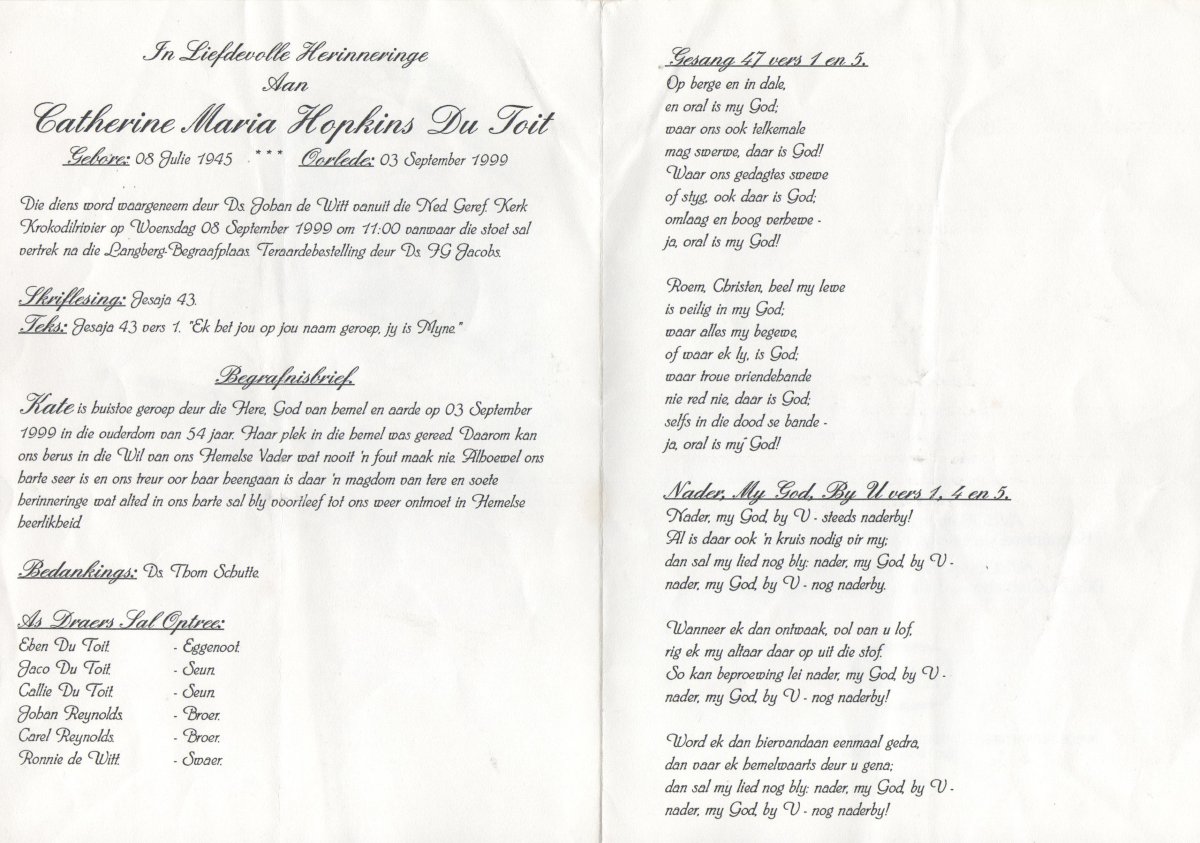 In Liefdevolle Herinneringe
Aan
Catherine Maria Hopkins Du Toit
Gebore: 08 Julie 1945 *** Oorlede: 03 September 1999
Die diens word waargeneem deur Ds. Johan de Witt vanuit die Ned. Geref. Kerk
Krokodilrivier op Woensdag 08 September 1999 om 11:00 vanwaar die stoet sal
vertrek na die Langberg-Begraafplaas. Teraardebestelling deur Ds. FG Jacobs.
Skriflesing: Jesaja 43.
Teks: Jesaja 43 vers 1. "Ek het jou op jou naam geroep, jy is Myne."
Begrafnisbrief.
Kate is huistoe geroep deur die Here, God van hemel en aarde op 03 September
1999 in die ouderdom van 54 jaar. Haar plek in die hemel was gereed. Daarom kan
ons berus in die Wil van ons Hemelse Vader wat nooit 'n fout maak nie. Alhoewel ons
harte seer is en ons treur oor haar heengaan is daar 'n magdom van tere en soete
herinneringe wat alted in ons harte sal bly voortleef tot ons weer ontmoet in Hemelse
heerlikheid.
Bedankings: Ds. Thom Schutte.
As Draers Sal Optree:
Eben Du Toit. - Eggenoot.
Jaco Du Toit. - Seun.
Callie Du Toit. - Seun.
Johan Reynolds. - Broer.
Carel Reynolds. - Broer.
Ronnie de Witt. - Swaer.
Gesang 47 vers 1 en 5.
Op berge en in dale,
en oral is my God;
waar ons ook telkemale
mag swerwe, daar is God!
Waar ons gedagtes swewe
of styg, ook daar is God;
omlaag en hoog verhewe -
ja, oral is my God!
Roem, Christen, heel my lewe
is veilig in my God;
waar alles my begewe,
of waar ek ly, is God;
waar troue vriendehande
nie red nie, daar is God;
selfs in die dood se bande -
ja, oral is my God!
Nader, My God, By U vers 1, 4 en 5.
Nader, my God, by U - steeds naderby!
Al is daar ook 'n kruis nodig vir my;
dan sal my lied nog bly: nader, my God, by U -
nader, my God, by U - nog naderby.
Wanneer ek dan ontwaak, vol van u lof,
rig ek my altaar daar op uit die stof.
So kan beproewing lei nader, my God, by U -
nader, my God, by U - nog naderby!
Word ek dan hiervandaan eenmaal gedra,
dan vaar ek hemelwaarts deur u gena;
dan sal my lied nog bly: nader, my God, by U -
nader, my God, by U - nog naderby!